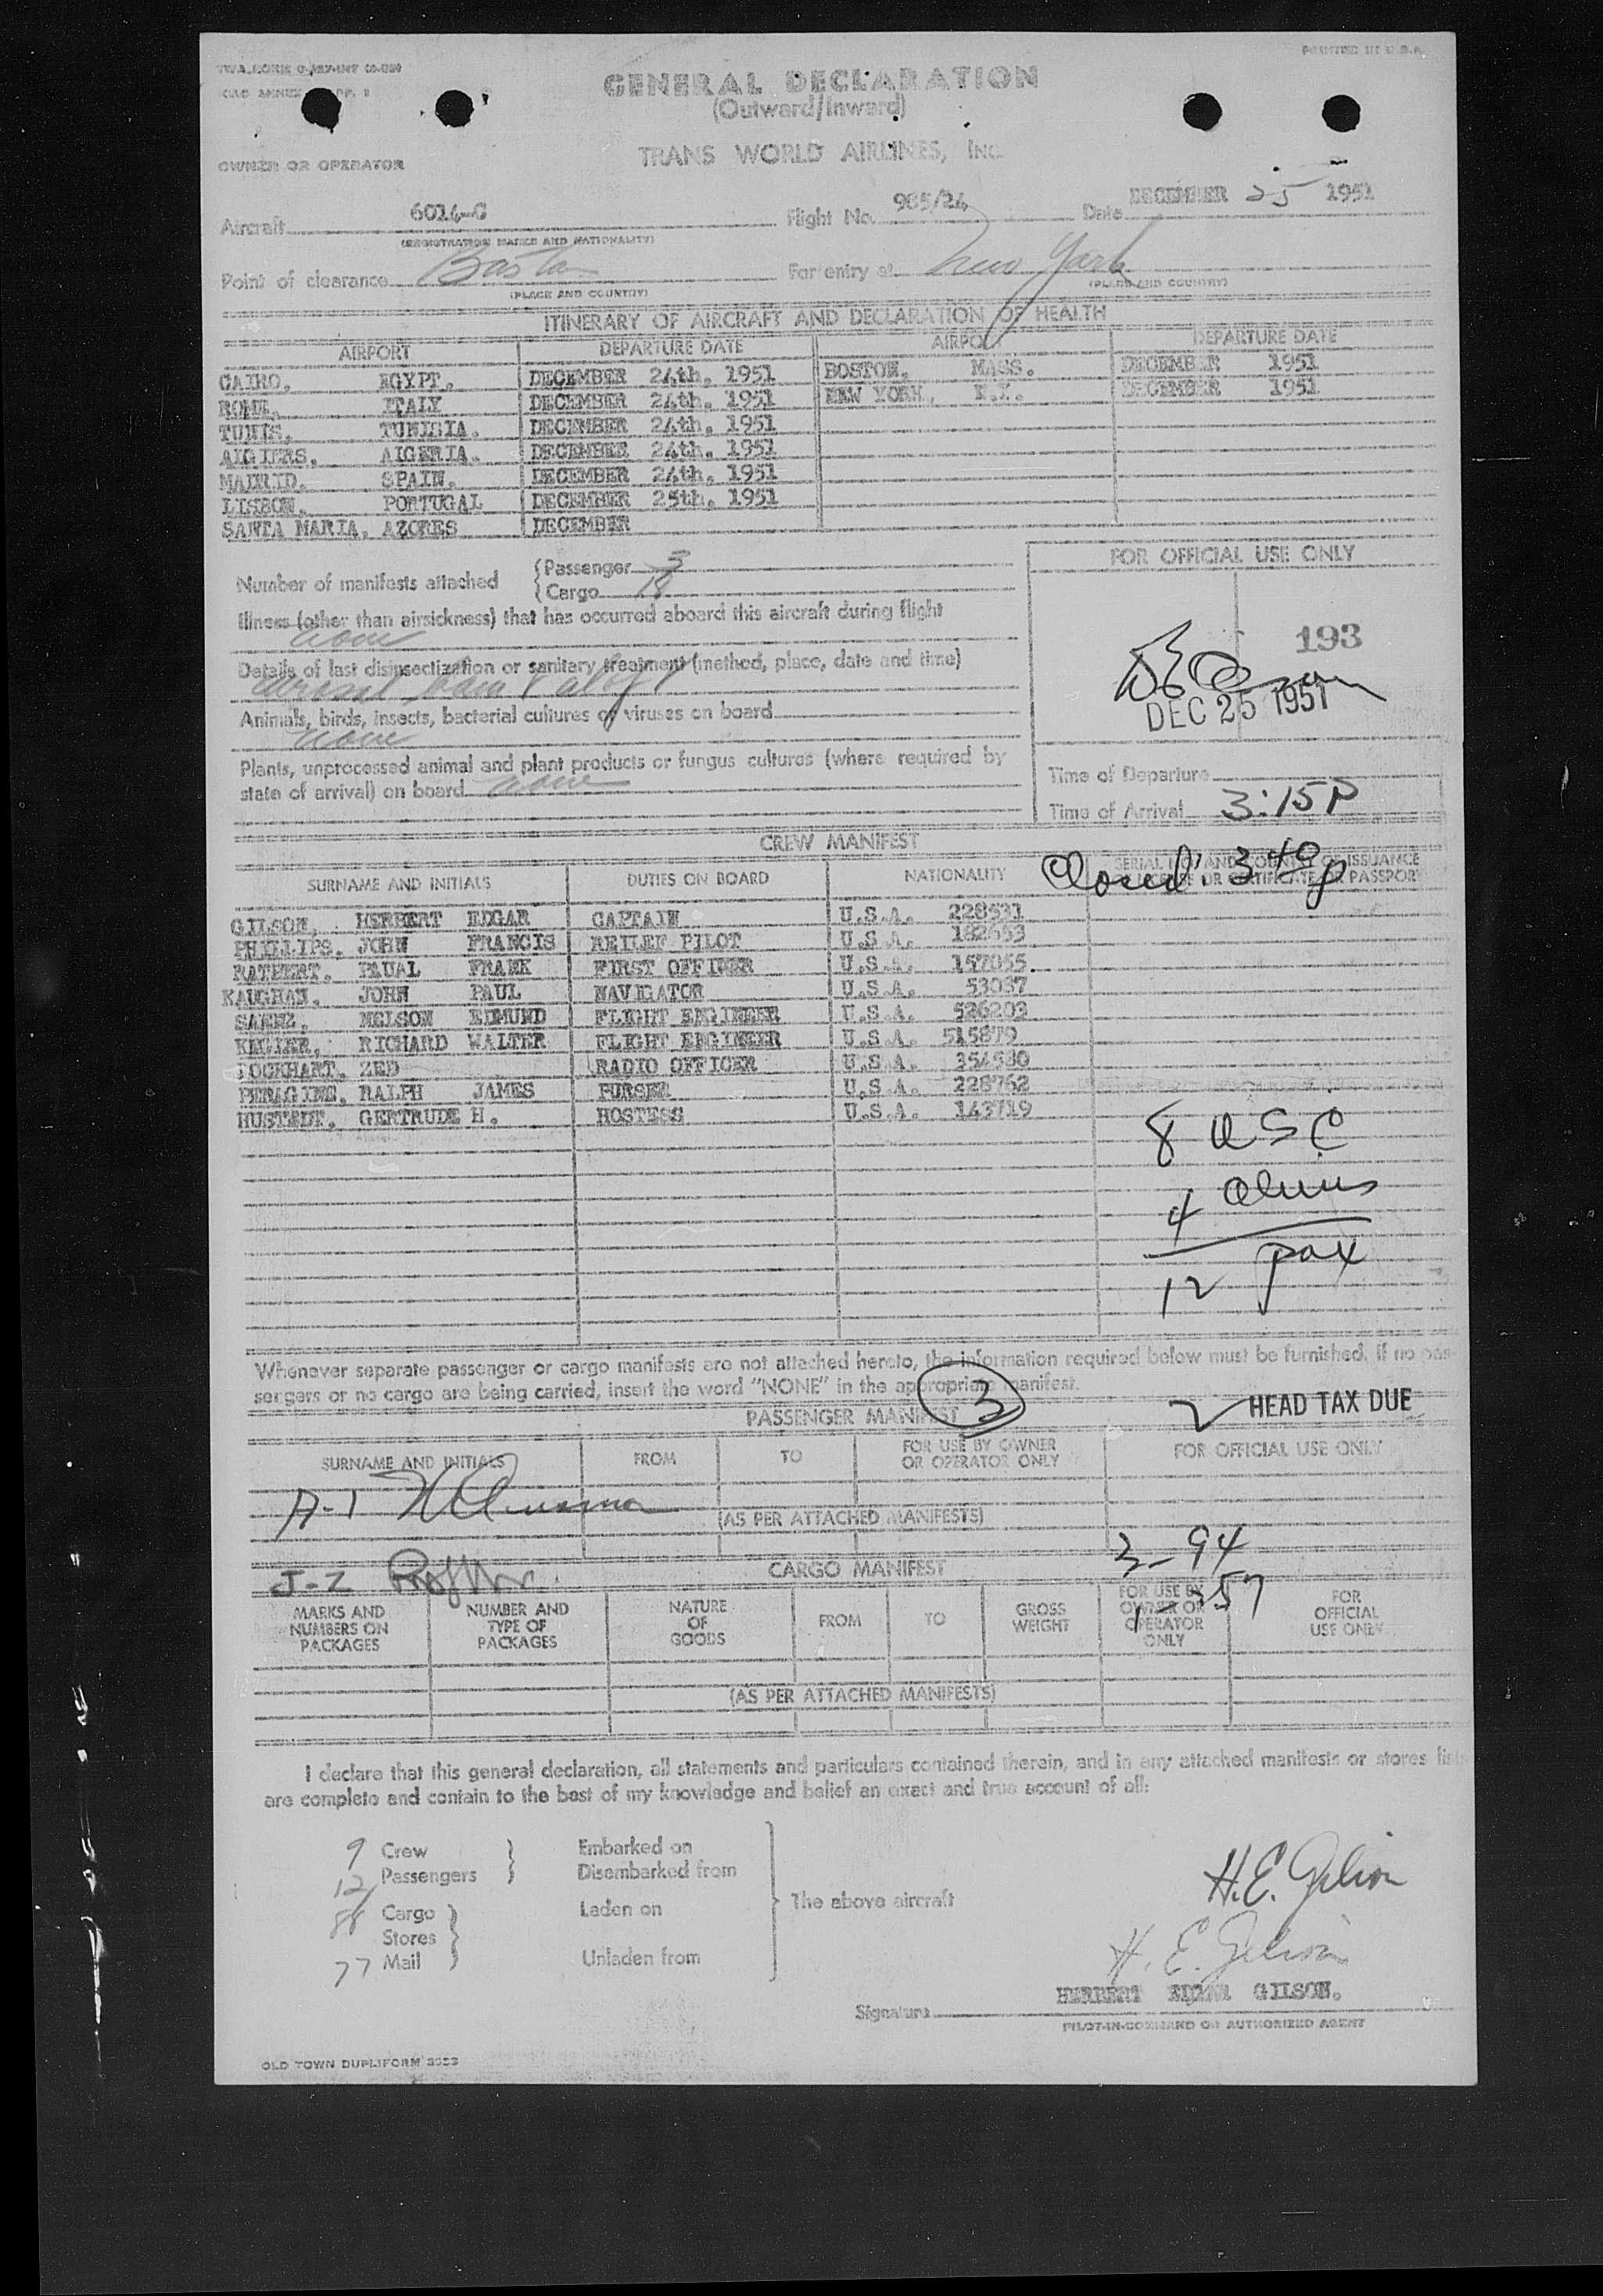 PRINTED IN U.S.A.
GENERAL DECLARATION
(Outward/Inward)
TRANS WORLD AIRLINES, Inc.
OWNER OR OPERATOR
Aircraft 6014-C Flight No. 985/24 Date DECEMBER 25 1951
(REGISTRATION MARKS AND NATIONALITY)
Point of clearance Boston For entry at New York
(PLACE AND COUNTRY) (PLACE AND COUNTRY)
ITINERARY OF AIRCRAFT AND DECLARATION OF HEALTH
AIRPORT DEPARTURE DATE AIRPORT DEPARTURE DATE
CAIRO, EGYPT. DECEMBER 24th. 1951 BOSTON. MASS. DECEMBER 1951
ROME, ITALY DECEMBER 24th. 1951 NEW YORK, N.Y. DECEMBER 1951
TUNIS. TUNISIA. DECEMBER 24th. 1951
ALGIERS. ALGERIA. DECEMBER 24th. 1951
MADRID. SPAIN. DECEMBER 24th. 1951
LISBON. PORTUGAL DECEMBER 25th. 1951
SANTA MARIA, AZORES DECEMBER
FOR OFFICIAL USE ONLY
Number of manifests attached
Passenger 3
Cargo 18
Illness (other than airsickness) that has occurred aboard this aircraft during flight
none
193
Details of last disinsectization or sanitary treatment (method, place, date and time)
DEC 25 1951
Animals, birds, insects, bacterial cultures or viruses on board
none
Plants, unprocessed animal and plant products or fungus cultures (where required by
state of arrival) on board none
Time of Departure
Time of Arrival 3:15P
CREW MANIFEST
Closed: 3 40p
SURNAME AND INITIALS DUTIES ON BOARD NATIONALITY SERIAL NO. AND COUNTRY OF ISSUANCE
OR CERTIFICATE OR PASSPORT
GILSON, HERBERT EDGAR CAPTAIN U.S.A. 228631
PHILLIPS. JOHN FRANCIS REILEF PILOT U.S.A. 182653
RATHERT. PAUAL FRANK FIRST OFFICER U.S.A. 157055
KAUGHAN. JOHN PAUL NAVIGATOR U.S.A. 53037
SAENZ. NELSON EDMUND FLIGHT ENGINEER U.S.A. 526203
KELLER, RICHARD WALTER FLIGHT ENGINEER U.S.A. 515879
LOCKHART. ZED RADIO OFFICER U.S.A. 354580
PERAGINE. RALPH JAMES PURSER U.S.A. 228762
HUSTEDT. GERTRUDE H. HOSTESS U.S.A. 143719
8 USC
4 aliens
12 pax
Whenever separate passenger or cargo manifests are not attached hereto, the information required below must be furnished. If no pas-
sengers or no cargo are being carried, insert the word "NONE" in the appropriate manifest.
PASSENGER MANIFEST 3 HEAD TAX DUE
SURNAME AND INITIALS FROM TO FOR USE BY OWNER
OR OPERATOR ONLY FOR OFFICIAL USE ONLY
A-1
(AS PER ATTACHED MANIFESTS)
3-94
J-2 CARGO MANIFEST
1-357
MARKS AND
NUMBERS ON
PACKAGES
NUMBER AND
TYPE OF
PACKAGES
NATURE
OF
GOODS
FROM
TO
GROSS
WEIGHT
FOR USE BY
OWNER OR
OPERATOR
ONLY
FOR
OFFICIAL
USE ONLY
(AS PER ATTACHED MANIFESTS)
I declare that this general declaration, all statements and particulars contained therein, and in any attached manifests or stores list
are complete and contain to the best of my knowledge and belief an exact and true account of all:
9 Crew Embarked on
12 Passengers Disembarked from
The above aircraft
88 Cargo Laden on
Stores
77 Mail Unladen from
H.E. Gilson
H. E. Gilson
HERBERT EDGAR GILSON.
Signature
PILOT-IN-COMMAND OR AUTHORIZED AGENT
OLD TOWN DUPLIFORM